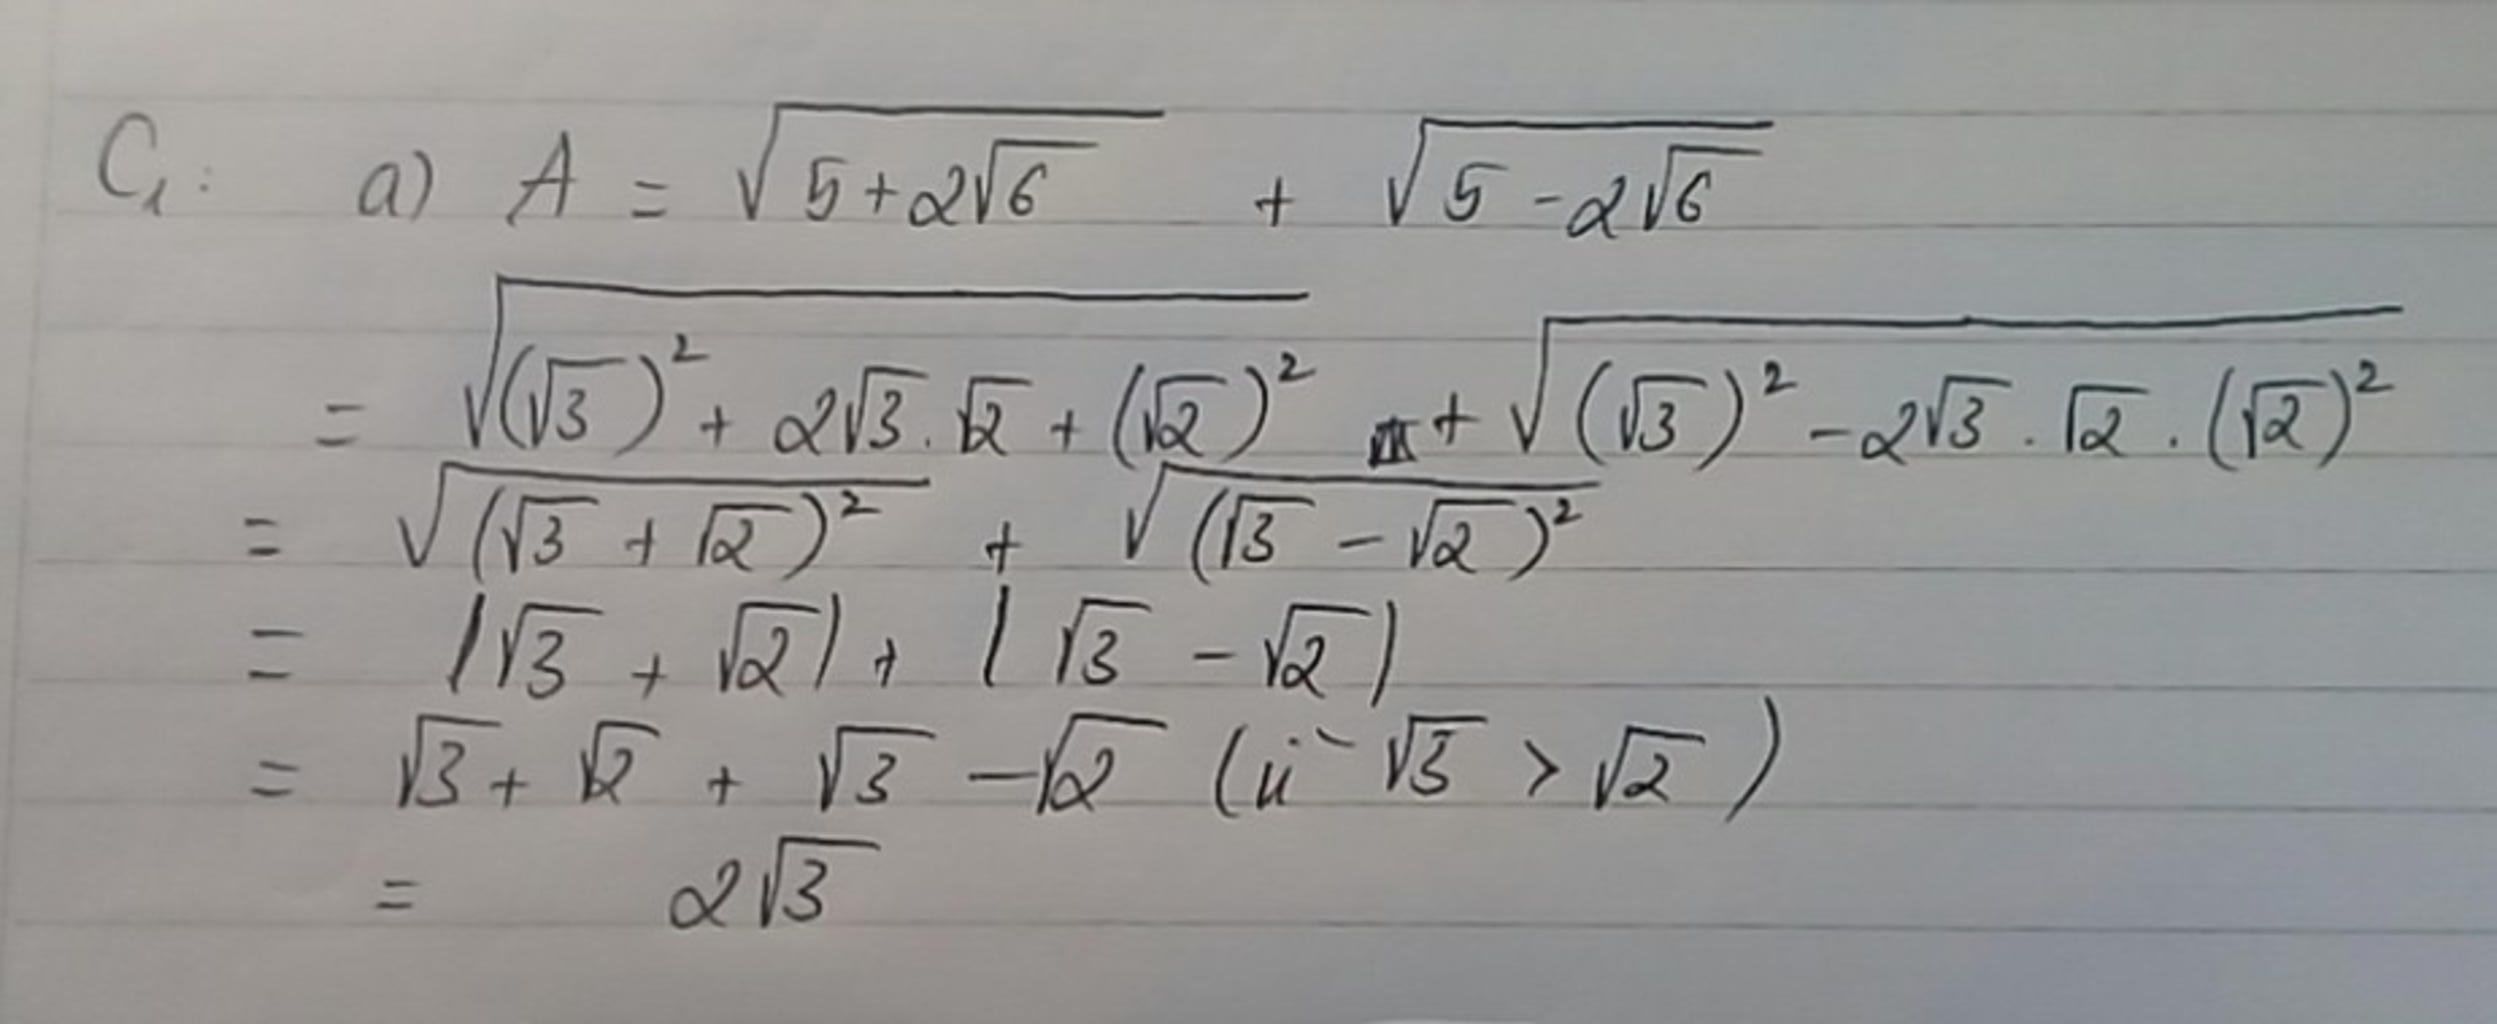 C₁: a) A = √(5+2√6) + √(5-2√6)
= √((√3)² + 2√3.√2 + (√2)²) + √((√3)² - 2√3.√2.(√2)²)
= √((√3 + √2)²) + √((√3 - √2)²)
= |√3 + √2| + |√3 - √2|
= √3 + √2 + √3 - √2 (vì √3 > √2)
= 2√3